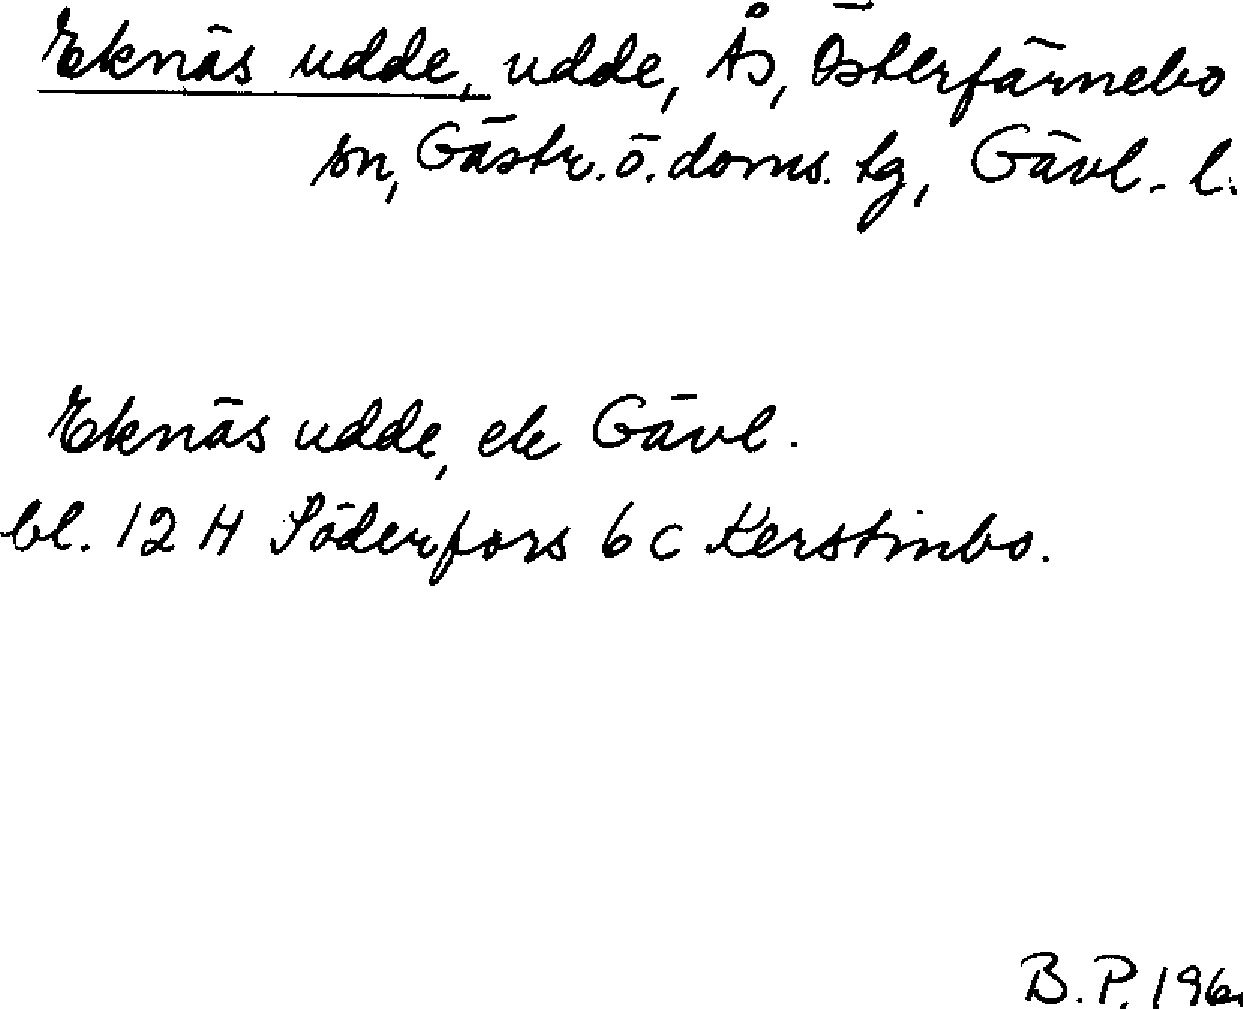 Eknäs udde, udde, Ås, Österfärnebo
sn, Gästr. ö. doms. tg, Gävl. l.
Eknäs udde, ek Gävl.
bl. 12 H Söderfors 6 c Kerstinbo.
B. P. 196